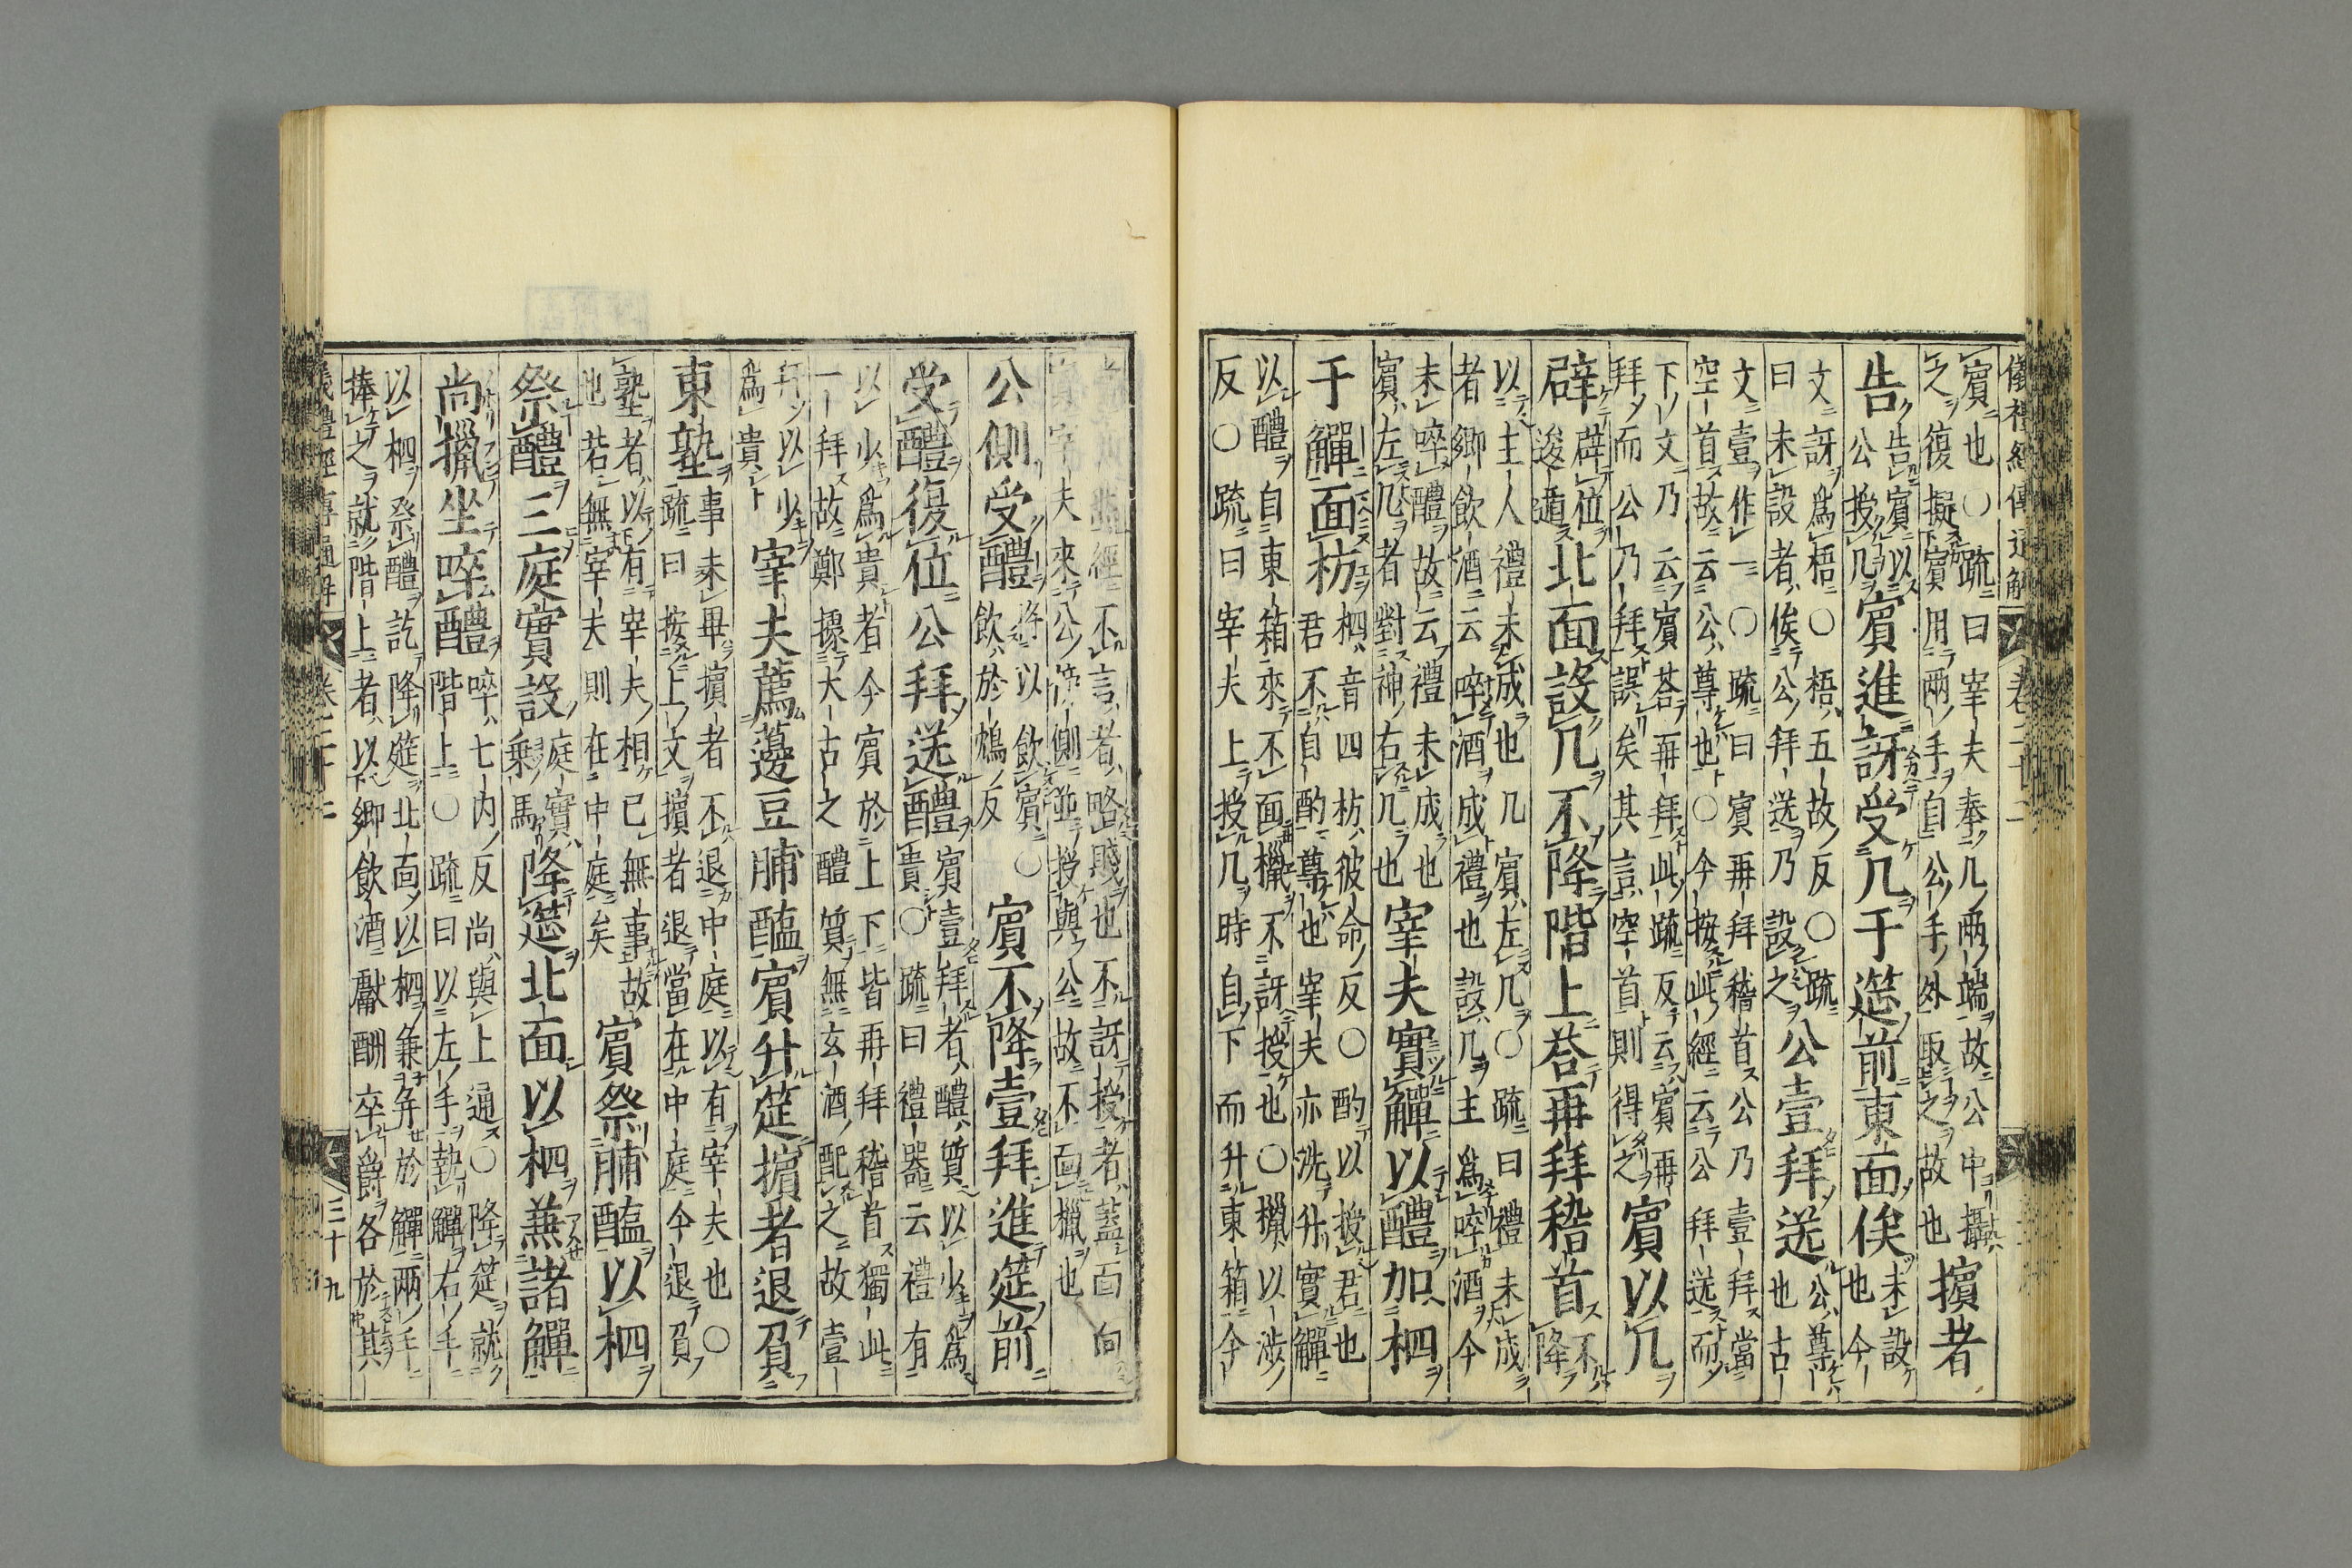 儀禮經傳通解
卷二十二
賓也○疏曰宰夫奉几兩端故公中攝
之復擬賓用兩手自公手外取之故也擯者
告告賓以公授几賓進訝受几于筵前東面俟未設也今
文訝爲梧○梧五故反○疏
曰未設者俟公拜送乃設之公壹拜送公尊也古
文壹作一○疏曰賓再拜稽首公乃壹拜當
空首故云公尊也○今按此經云公拜送而
下文乃云賓荅再拜此疏反云賓再
拜而公乃拜誤矣其言空首則得之賓以几
辟辟位逡遁北面設几不降階上荅再拜稽首不降
以主人禮未成也几賓左几○疏曰禮未成
者卿飲酒云啐酒成禮也設几主爲啐酒今
未啐醴故云禮未成也
賓左几者對神右几也宰夫實觶以醴加柶
于觶面枋柶音四枋彼命反○酌以授君也
君不自酌尊也宰夫亦洗升實觶
以醴自東箱來不面擸不訝授也○擸以涉
反○疏曰宰夫上授几時自下而升東箱今
經不言者略賤也不訝授者蓋面向
宰夫來公傍側並授與公故不面擸也
公側受醴將以飲賓○
飲於鴆反賓不降壹拜進筵前
受醴復位公拜送醴賓壹拜者醴質以少爲
貴○疏曰禮器云禮有
以少爲貴者今賓於上下皆再拜稽首獨此
一拜故鄭據大古之醴質無玄酒配之故壹
拜以少
爲貴宰夫薦籩豆脯醢賓升筵擯者退負
東塾事未畢擯者不退中庭以有宰夫也○
疏曰按上文擯者退當在中庭今退負
塾者以有宰夫相已無事故
也若無宰夫則在中庭矣賓祭脯醢以柶
祭醴三庭實設庭實
乘馬降筵北面以柶兼諸觶
尚擸坐啐醴啐七內反尚與上通○降筵就
階上○疏曰以左手執觶右手
以柶祭醴訖降筵北面以柶兼幷於觶兩手
捧之就階上者以卿飲酒獻酬卒爵各於其
儀禮經傳通解
卷二十二
三十九